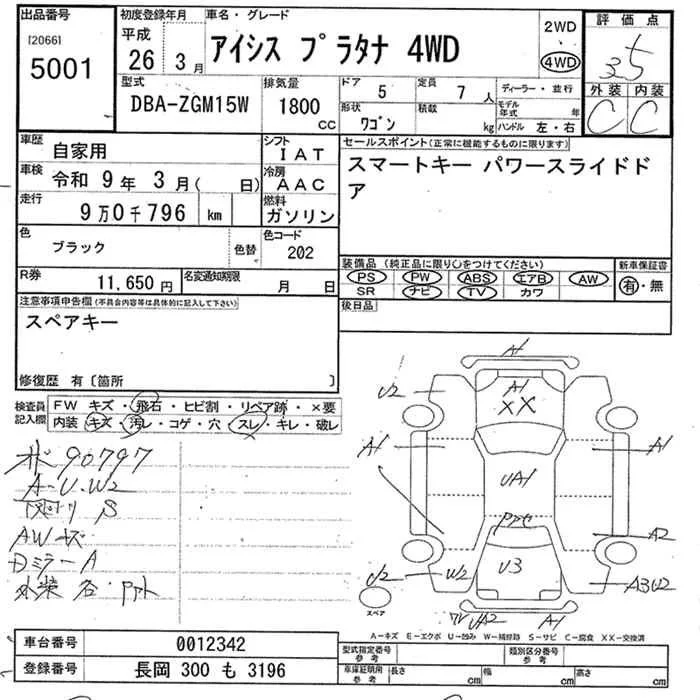 出品番号
[2066]
5001
初度登録年月
平成
26 3月
車名・グレード
アイシス プラタナ 4WD
2WD
・
4WD
評価点
3.5
外装 内装
C C
型式
DBA-ZGM15W
排気量
1800
CC
ドア 5
定員 7 人
形状
ワゴン
積載
kg
ディーラー・並行
モデル年式 年
ハンドル 左・右
車歴
自家用
シフト
IAT
車検
令和 9年 3月( 日)
冷房
AAC
走行
9万0千796 km
燃料
ガソリン
色
ブラック
色替
色コード
202
R券
11,650円
名変通知期限
月 日
セールスポイント(正常に機能するものに限ります)
スマートキー パワースライドド
ア
装備品(純正品に限り〇をつけてください)
PS PW ABS エアB AW
SR ナビ TV カワ
新車保証書
有・無
後日品
注意事項申告欄(不具合内容等は具体的に記入して下さい)
スペアキー
修復歴 有〔箇所 〕
検査員
記入欄
FW キズ・飛石・ヒビ割・リペア跡・×要
内装 キズ・汚レ・コゲ・穴・スレ・キレ・破レ
90797
A-U-W2
S
AWキズ
DミラーA
A1
U2
A1
XX
A1
A1
UA1
A2
U3
U2
W2
A3U2
UA2
A1
スペア
A-キズ E-エクボ U-凹み W-補修跡 S-サビ C-腐食 XX-交換済
車台番号
0012342
登録番号
長岡 300 も 3196
型式指定番号
参考
類別区分番号
参考
車庫証明用
参考
長さ cm
幅 cm
高さ cm